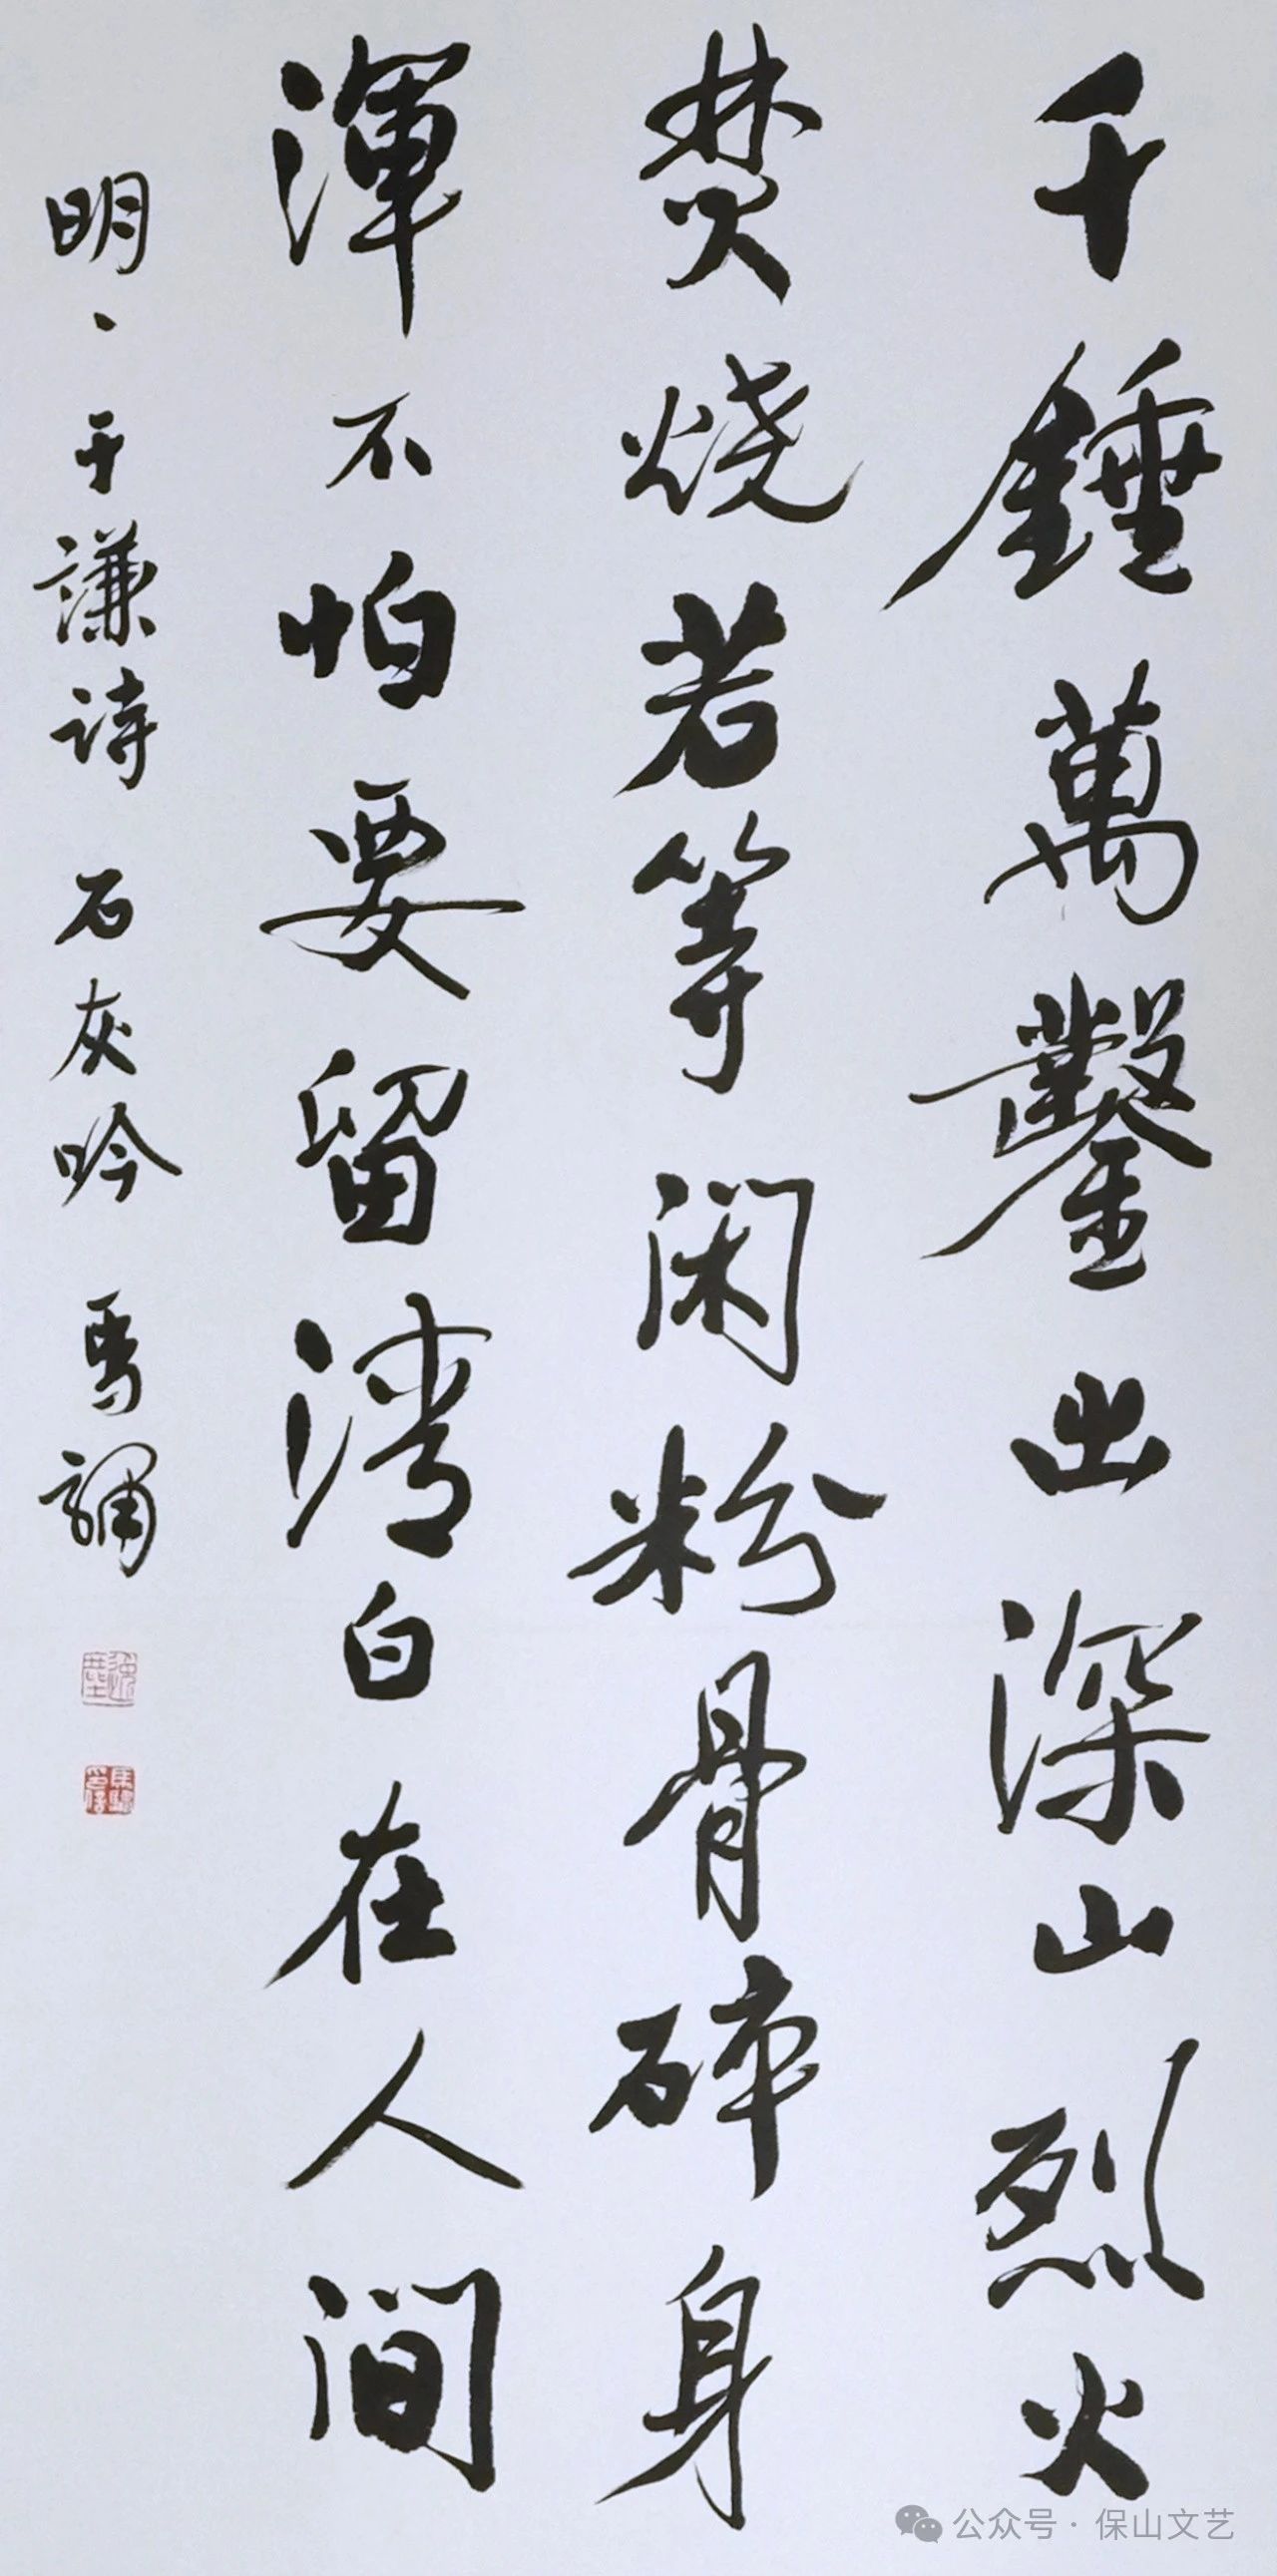 千錘萬鑿出深山烈火
焚烧若等闲粉骨碎身
渾不怕要留清白在人间
明、于謙诗 石灰吟 馬
公众号·保山文艺